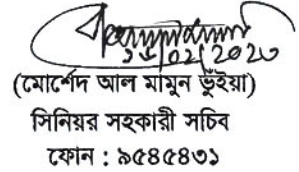 ১৬/০২/২০২৩
(মোর্শেদ আল মামুন ভূঁইয়া)
সিনিয়র সহকারী সচিব
ফোন : ৯৫৪৫৮৩১